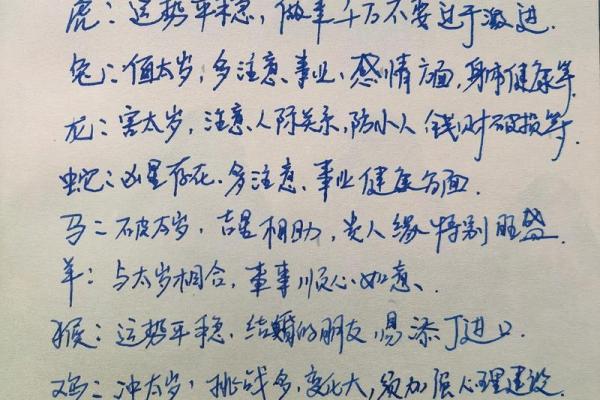 虎：运势平稳，做事千万不要过于激进.
兔：值太岁，多注意、事业、感情方面，身体健康等.
龙：害太岁，注意人际关系，防小人 钱财破损等
蛇：凶星存在、多注意、事业健康方面.
马：破太岁，吉星相助，贵人缘特别旺盛.
羊：与太岁相合，事事顺心如意、
猴：运势平稳，结婚的朋友易添丁进口.
鸡：冲太岁，挑战多，变化大，须加强心理建设.